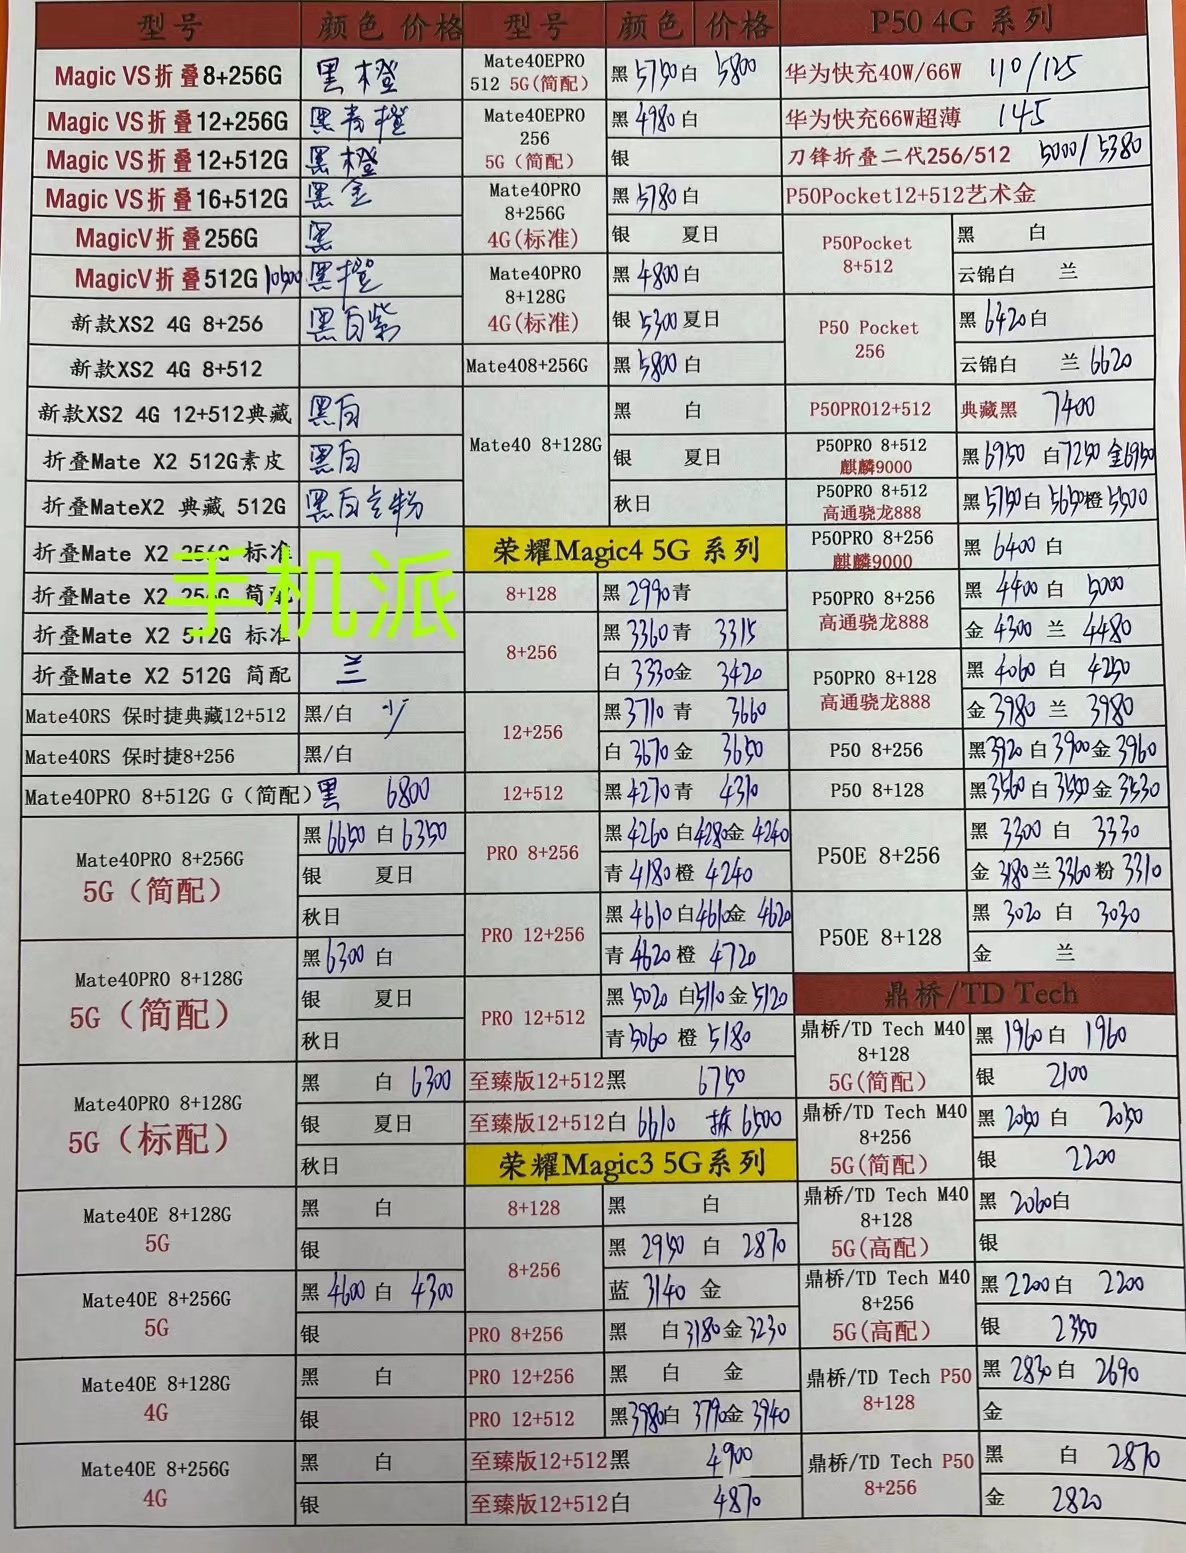 型号 颜色 价格
Magic VS折叠8+256G 黑 橙
Magic VS折叠12+256G 黑 青 橙
Magic VS折叠12+512G 黑 橙
Magic VS折叠16+512G 黑 金
MagicV折叠256G 黑
MagicV折叠512G 10500 黑 橙
新款XS2 4G 8+256 黑 白 紫
新款XS2 4G 8+512
新款XS2 4G 12+512典藏 黑白
折叠Mate X2 512G素皮 黑白
折叠MateX2 典藏 512G 黑白 粉
折叠Mate X2 256G 标准
折叠Mate X2 256G 简配
手机派
折叠Mate X2 512G 标准
折叠Mate X2 512G 简配 兰
Mate40RS 保时捷典藏12+512 黑/白
Mate40RS 保时捷8+256 黑/白
Mate40PRO 8+512G G（简配） 黑 6800
Mate40PRO 8+256G
5G（简配）
黑 6650 白 6350
银 夏日
秋日
Mate40PRO 8+128G
5G（简配）
黑 6300 白
银 夏日
秋日
Mate40PRO 8+128G
5G（标配）
黑 白 6300
银 夏日
秋日
Mate40E 8+128G
5G
黑 白
银
Mate40E 8+256G
5G
黑 4600 白 4300
银
Mate40E 8+128G
4G
黑 白
银
Mate40E 8+256G
4G
黑 白
银
型号 颜色 价格
Mate40EPRO
512 5G(简配)
黑 5750 白 5800
Mate40EPRO
256
5G（简配）
黑 4980 白
银
Mate40PRO
8+256G
4G(标准)
黑 5780 白
银 夏日
Mate40PRO
8+128G
4G(标准)
黑 4800 白
银 5300 夏日
Mate408+256G 黑 5800 白
Mate40 8+128G
黑 白
银 夏日
秋日
荣耀Magic4 5G 系列
8+128 黑 2990 青
8+256
黑 3360 青 3315
白 3330 金 3420
12+256
黑 3710 青 3660
白 3670 金 3650
12+512 黑 4270 青 4310
PRO 8+256
黑 4260 白 4280 金 4240
青 4180 橙 4240
PRO 12+256
黑 4610 白 4610 金 4620
青 4620 橙 4720
PRO 12+512
黑 5020 白 5110 金 5120
青 5060 橙 5180
至臻版12+512黑 6750
至臻版12+512白 6610 拆 6500
荣耀Magic3 5G系列
8+128 黑 白
8+256
黑 2950 白 2870
蓝 3140 金
PRO 8+256 黑 白 3180 金 3230
PRO 12+256 黑 白 金
PRO 12+512 黑 3980 白 3790 金 3940
至臻版12+512黑 4900
至臻版12+512白 4870
P50 4G 系列
华为快充40W/66W 110/125
华为快充66W超薄 145
刀锋折叠二代256/512 5000/5380
P50Pocket12+512艺术金
P50Pocket
8+512
黑 白
云锦白 兰
P50 Pocket
256
黑 6420 白
云锦白 兰 6620
P50PRO12+512 典藏黑 7400
P50PRO 8+512
麒麟9000
黑 6950 白 7250 金 6950
P50PRO 8+512
高通骁龙888
黑 5750 白 5650 橙 5500
P50PRO 8+256
麒麟9000
黑 6400 白
P50PRO 8+256
高通骁龙888
黑 4400 白 5000
金 4300 兰 4480
P50PRO 8+128
高通骁龙888
黑 4060 白 4250
金 3980 兰 3980
P50 8+256 黑 3920 白 3900 金 3960
P50 8+128 黑 3560 白 3550 金 3530
P50E 8+256
黑 3300 白 3330
金 3180 兰 3360 粉 3310
P50E 8+128
黑 3020 白 3030
金 兰
鼎桥/TD Tech
鼎桥/TD Tech M40
8+128
5G(简配)
黑 1960 白 1960
银 2100
鼎桥/TD Tech M40
8+256
5G(简配)
黑 2050 白 2050
银 2200
鼎桥/TD Tech M40
8+128
5G(高配)
黑 2060 白
银
鼎桥/TD Tech M40
8+256
5G(高配)
黑 2200 白 2200
银 2350
鼎桥/TD Tech P50
8+128
黑 2830 白 2690
金
鼎桥/TD Tech P50
8+256
黑 白 2870
金 2820